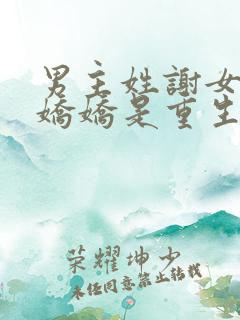 男主姓謝女
嬌嬌是重生
荣耀坤少
未经同意禁止转载